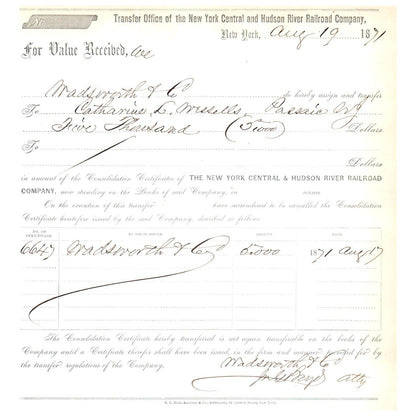 No.
Transfer Office of the New York Central and Hudson River Railroad Company,
New York, Aug 19 1871
For Value Received, We
Wadsworth & Co do hereby assign and transfer
To Catharine L. Wessells, Passaic NJ
Five Thousand (5,000) Dollars
Dollars
in amount of the Consolidation Certificates of THE NEW YORK CENTRAL & HUDSON RIVER RAILROAD
COMPANY, now standing on the Books of said Company, in name
On the execution of this transfer have surrendered to be cancelled the Consolidation
Certificate heretofore issued by the said Company, described as follows
No. OF CERTIFICATE.
6647 Wadsworth & Co 5,000 1871 Aug 17
The Consolidation Certificate hereby transferred is not again transferable on the books of the
Company until a Certificate therefor shall have been issued in the form and manner provided for by the
transfer regulations of the Company.
Wadsworth & Co
Atty